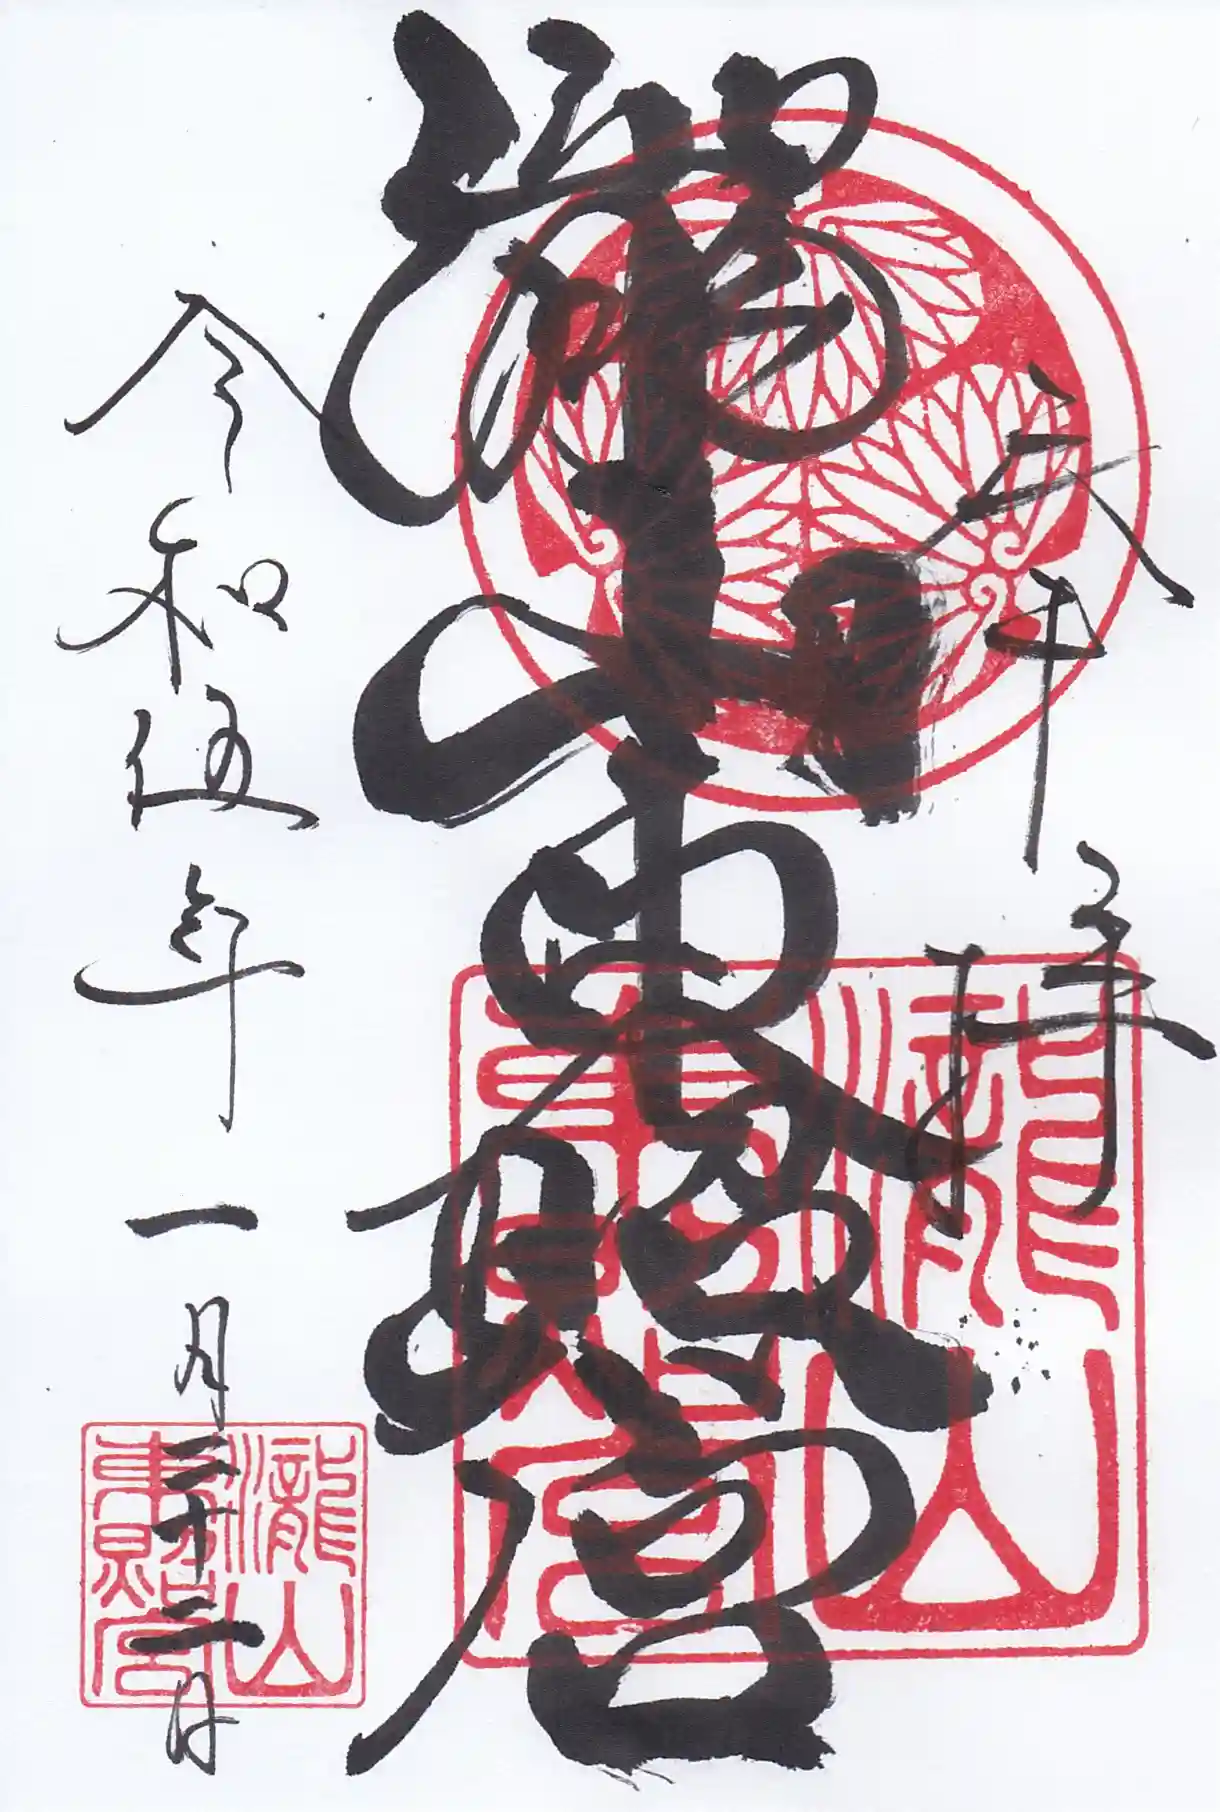 奉拝
瀧山東照宮
令和伍年一月二十二日
瀧山東照宮
瀧山東照宮